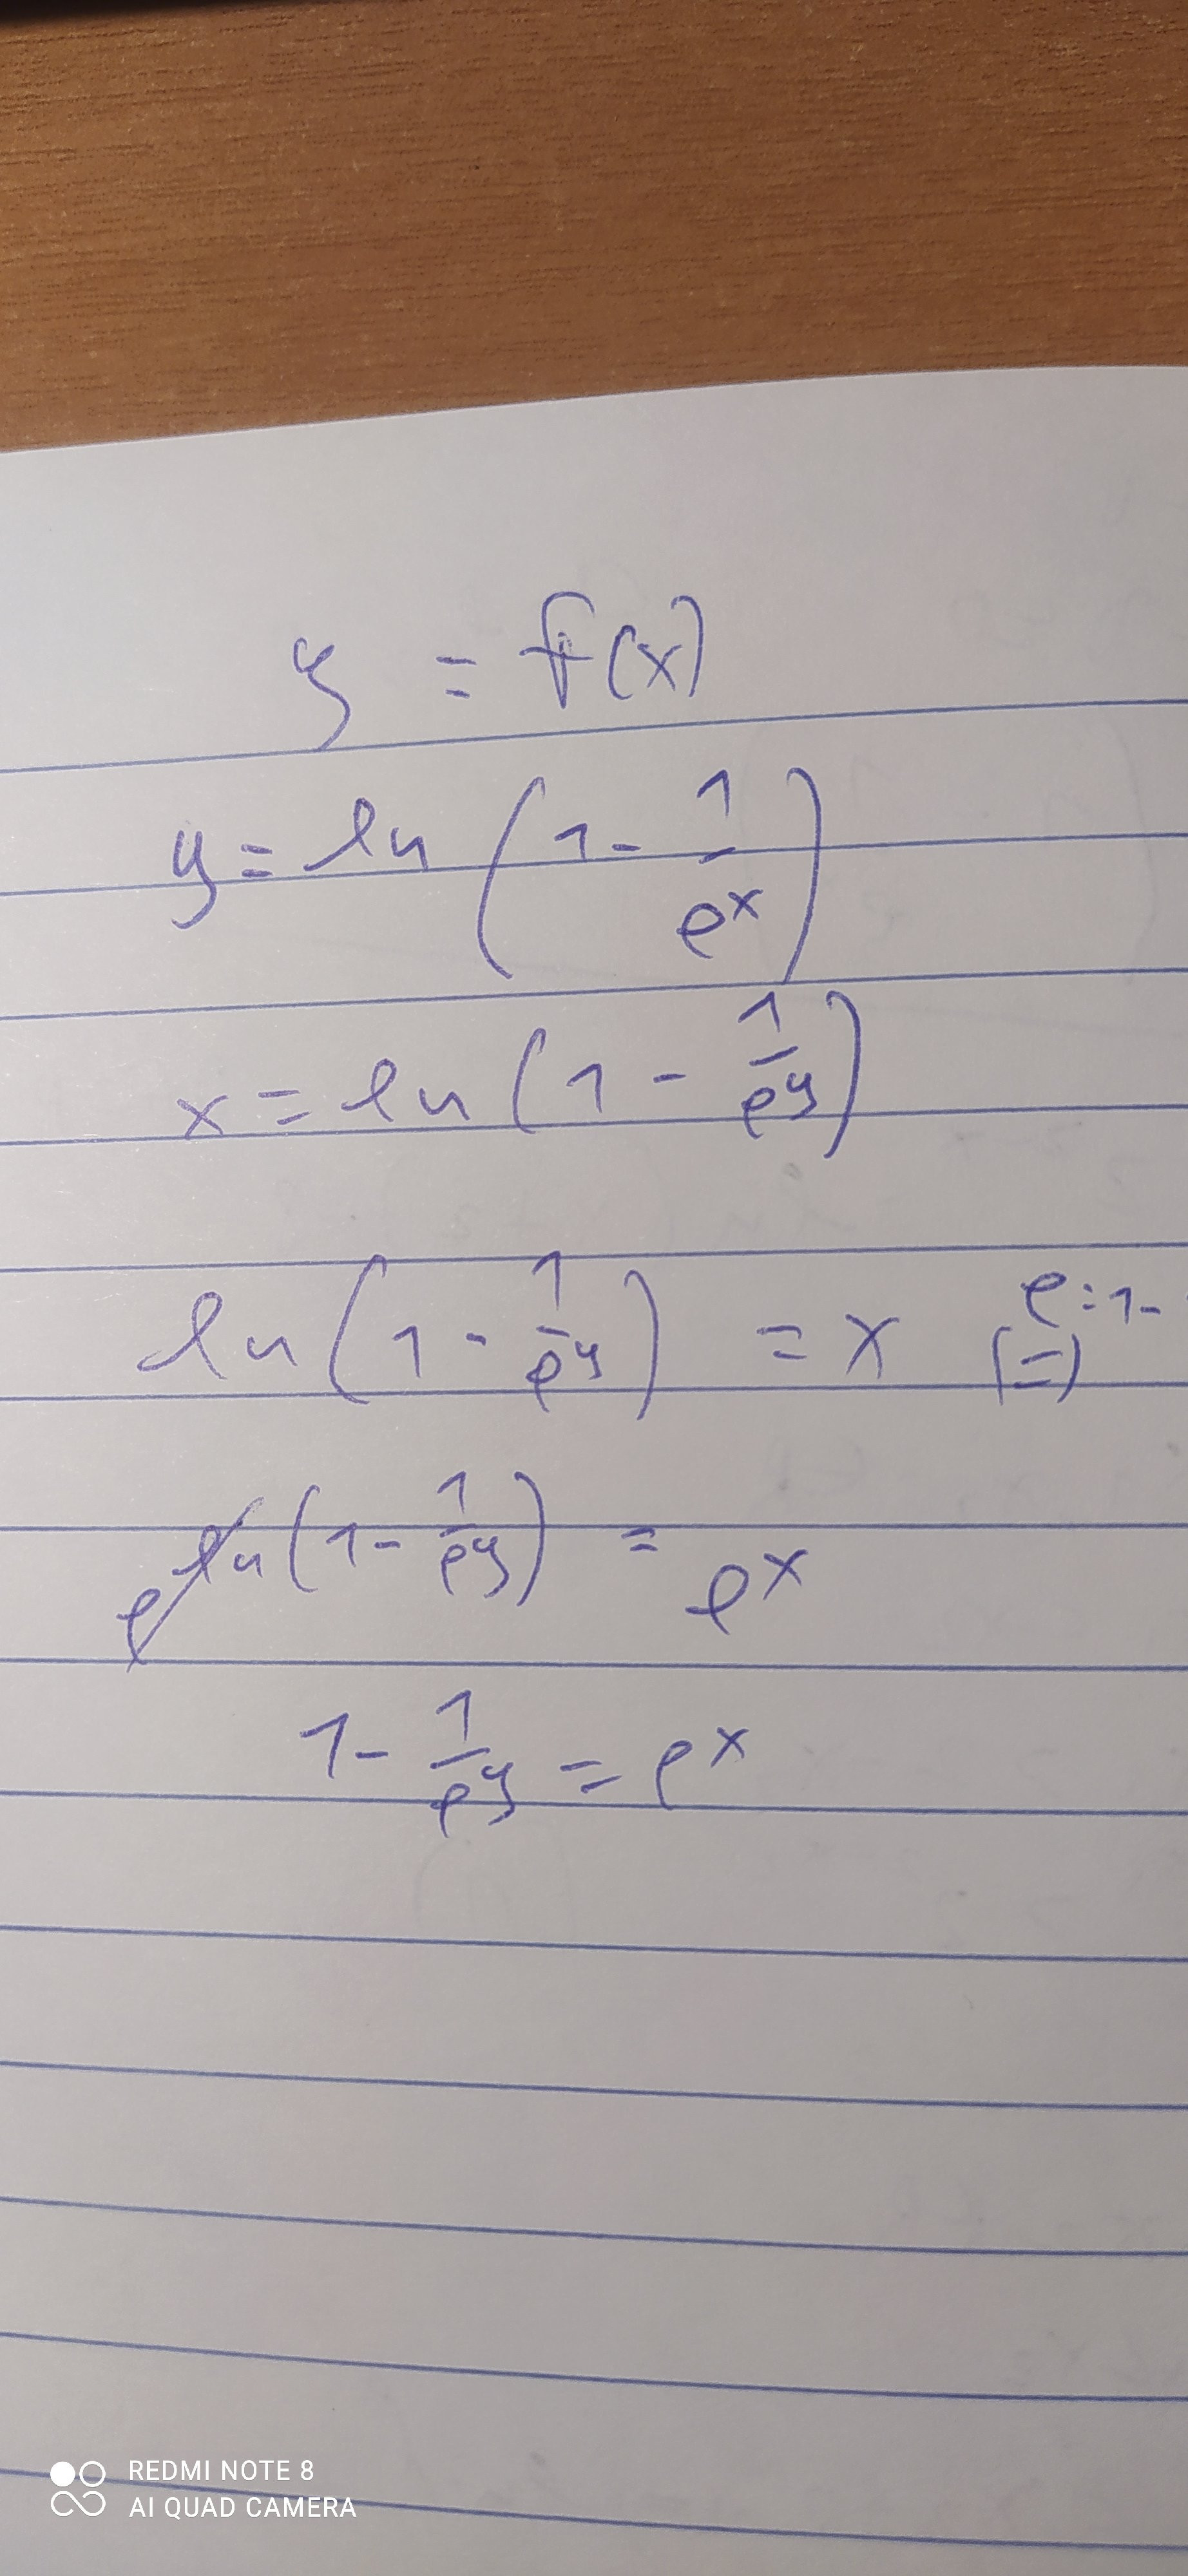 y = f(x)
y = ln (1 - 1/e^x)
x = ln (1 - 1/e^y)
ln (1 - 1/e^y) = x (=) e:1-
e^ln (1 - 1/e^y) = e^x
1 - 1/e^y = e^x
REDMI NOTE 8
AI QUAD CAMERA